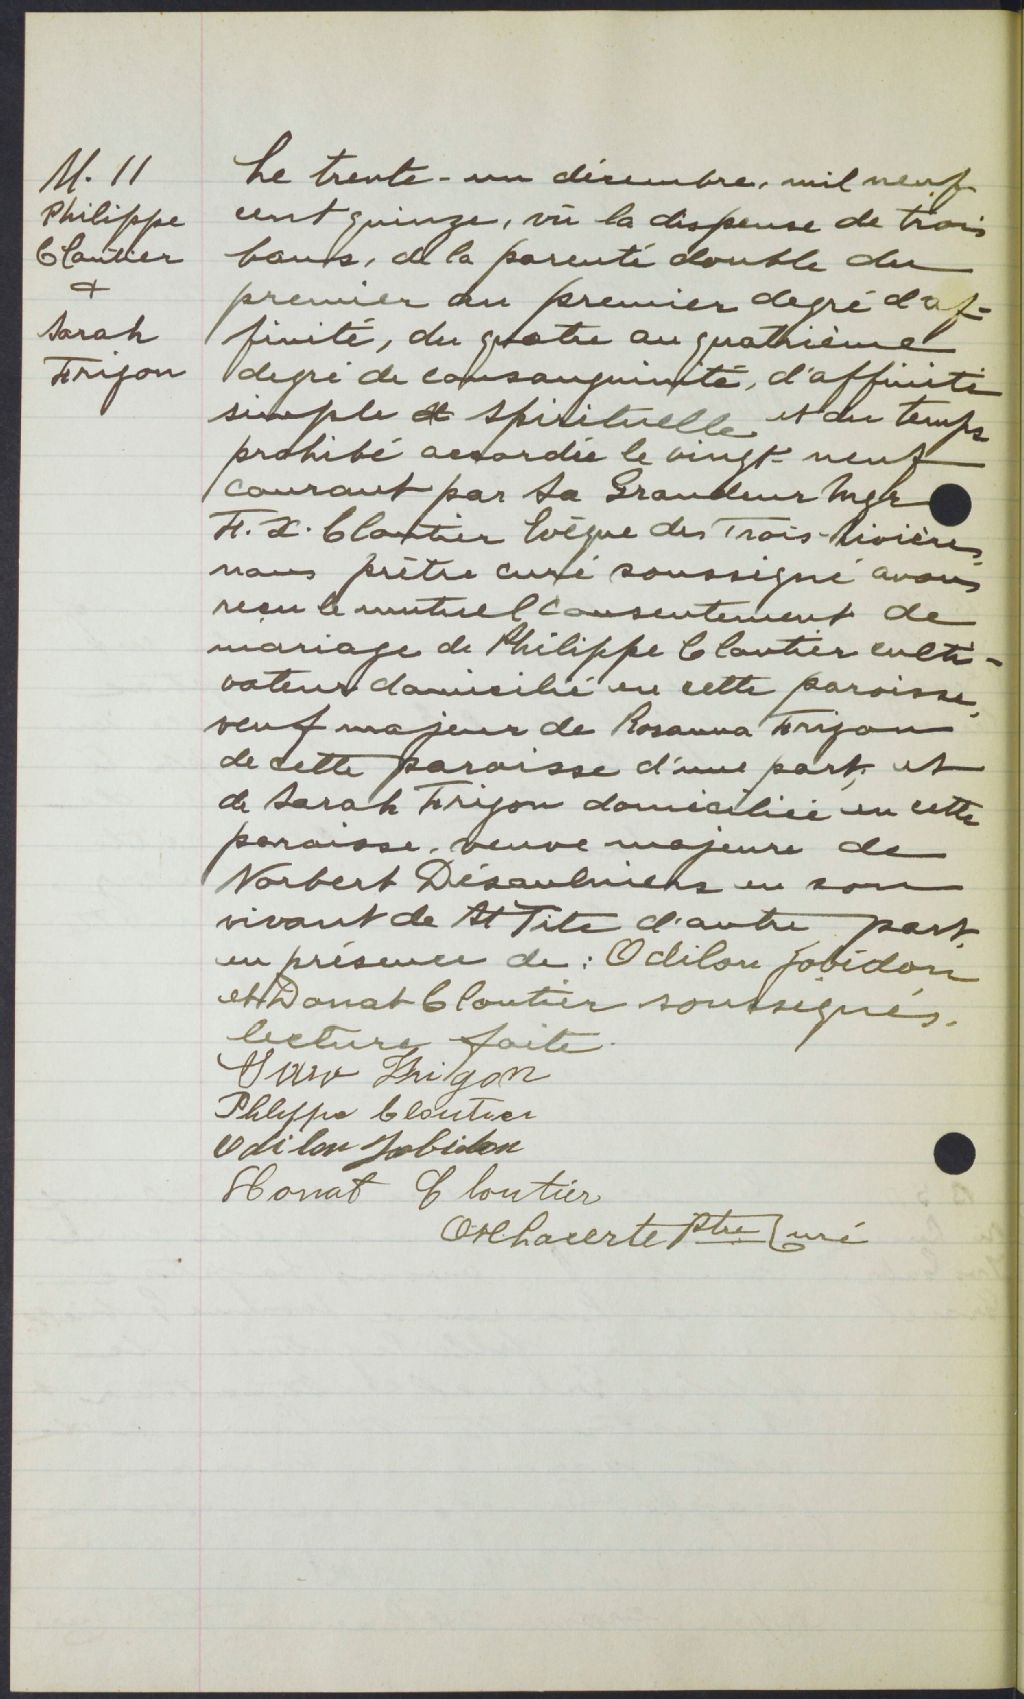 M. 11
Philippe
Cloutier
&
Sarah
Frigon
Le trente-un décembre, mil neuf
cent quinze, vû la dispense de trois
bans, de la parenté double du
premier au premier degré d'af-
finité, du quatre au quatrième
degré de consanguinité, d'affinité
simple et spirituelle et du temps
prohibé accordée le vingt-neuf
courant par Sa Grandeur Mgr
F. X. Cloutier Evêque des Trois-Rivières,
nous prêtre curé soussigné avons
reçu le mutuel consentement de
mariage de Philippe Cloutier culti-
vateur domicilié en cette paroisse,
veuf majeur de Rosanna Frigon
de cette paroisse d'une part, et
de Sarah Frigon domiciliée en cette
paroisse, veuve majeure de
Norbert Désaulniers en son
vivant de St Tite d'autre part,
en présence de : Odilon Jobidon
et Donat Cloutier soussignés.
lecture faite.
Frigon
Philippe Cloutier
Odilon Jobidon
Donat Cloutier
Ptre Curé